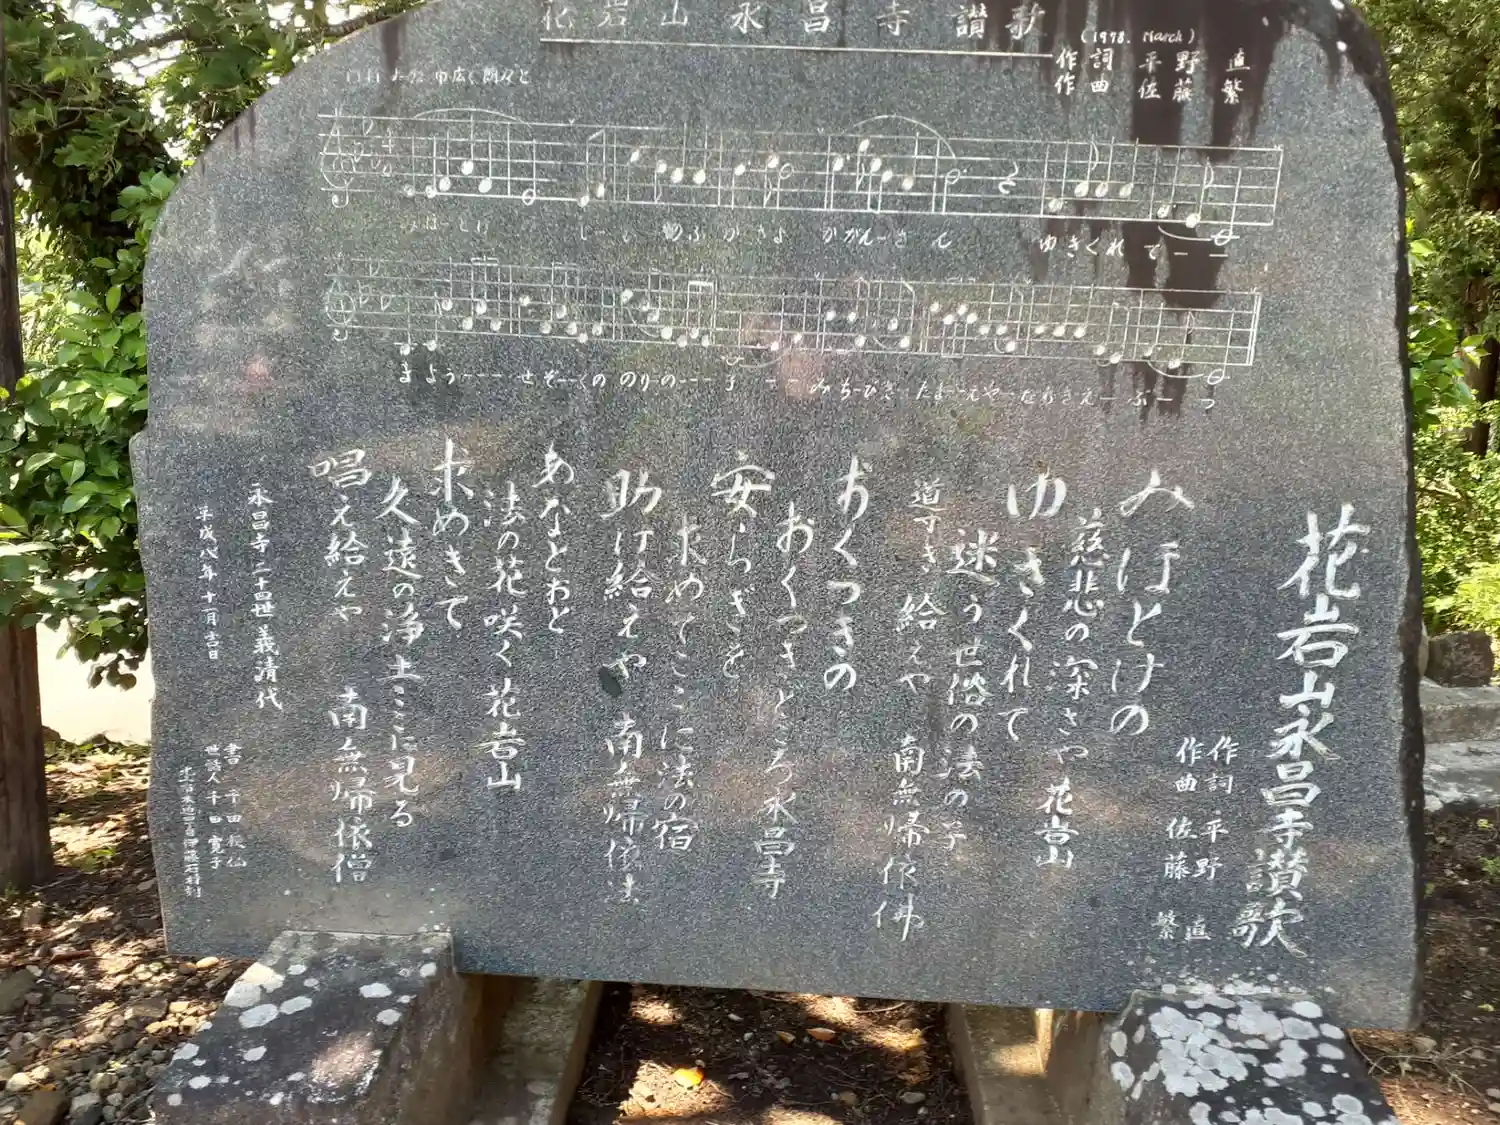 花岩山永昌寺讃歌
(1978. March)
作詞 平野 直
作曲 佐藤 繁
巾広く朗々と
みほーとけ じーひ のふかさよ かがんーさん ゆきくれてーー
まようーーー せぞーくの のりのーーー子 みちーびき たまーえやー なむきえーぶーつ
花岩山永昌寺讃歌
作詞 平野 直
作曲 佐藤 繁
みほとけの
慈悲の深さや 花岩山
ゆきくれて
迷う世俗の法の子
道びき給えや 南無帰依佛
おくつきの
おくつきどころ永昌寺
安らぎを
求めてここに法の宿
助け給えや 南無帰依法
あなとおと
法の花咲く花岩山
求めきて
久遠の浄土ここに見る
唱え給えや 南無帰依僧
永昌寺二十四世 義清代
平成八年十一月吉日
書 千田
世話人 千田 寛子
伊藤石材刻